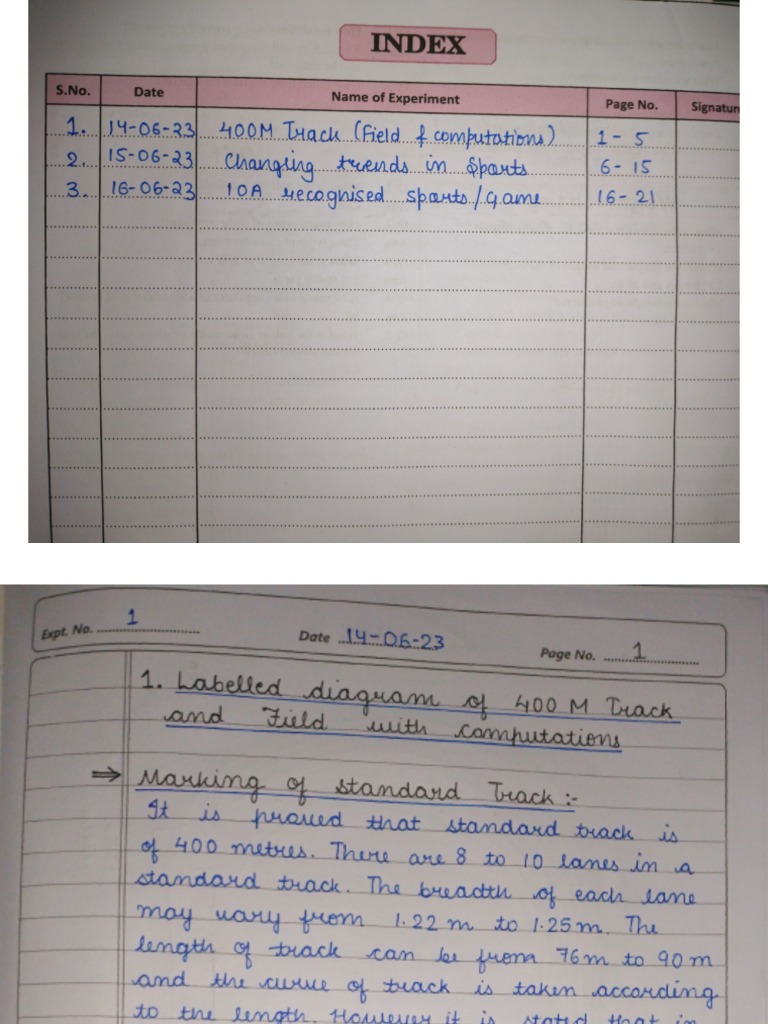 INDEX
S.No. Date Name of Experiment Page No. Signatur
1. 14-06-23 400M Track (Field & computations) 1 - 5
2. 15-06-23 Changing trends in Sports 6 - 15
3. 16-06-23 IOA recognised sports/Game 16 - 21
Expt. No. 1 Date 14-06-23 Page No. 1
1. Labelled diagram of 400 M Track
and Field with computations
⇒ Marking of standard Track :-
It is proved that standard track is
of 400 metres. There are 8 to 10 lanes in a
standard track. The breadth of each lane
may vary from 1.22 m to 1.25 m. The
length of track can be from 76m to 90 m
and the curve of track is taken according
to the length. However it is stated that in